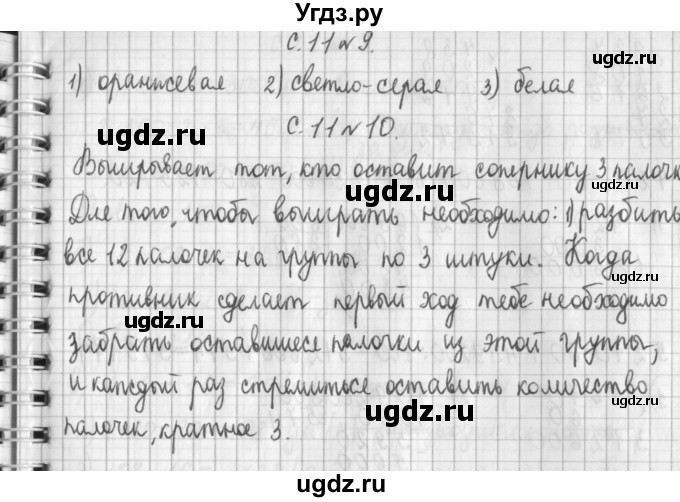 Угдз.ру
с. 11 №9.
1) оранжевая 2) светло-серая 3) белая
с. 11 №10.
Выигрывает тот, кто оставит сопернику 3 палочк
Для того, чтобы выиграть необходимо: 1) разбить
все 12 палочек на группы по 3 штуки. Когда
противник сделает первый ход тебе необходимо
забрать оставшиеся палочки из этой группы,
и каждый раз стремиться оставить количество
палочек, кратное 3.
ugdz.ru
ugdz.ru
ugdz.ru
ugdz.ru
ugdz.ru
ugdz.ru
ugdz.ru
ugdz.ru
ugdz.ru
ugdz.ru
ugdz.ru